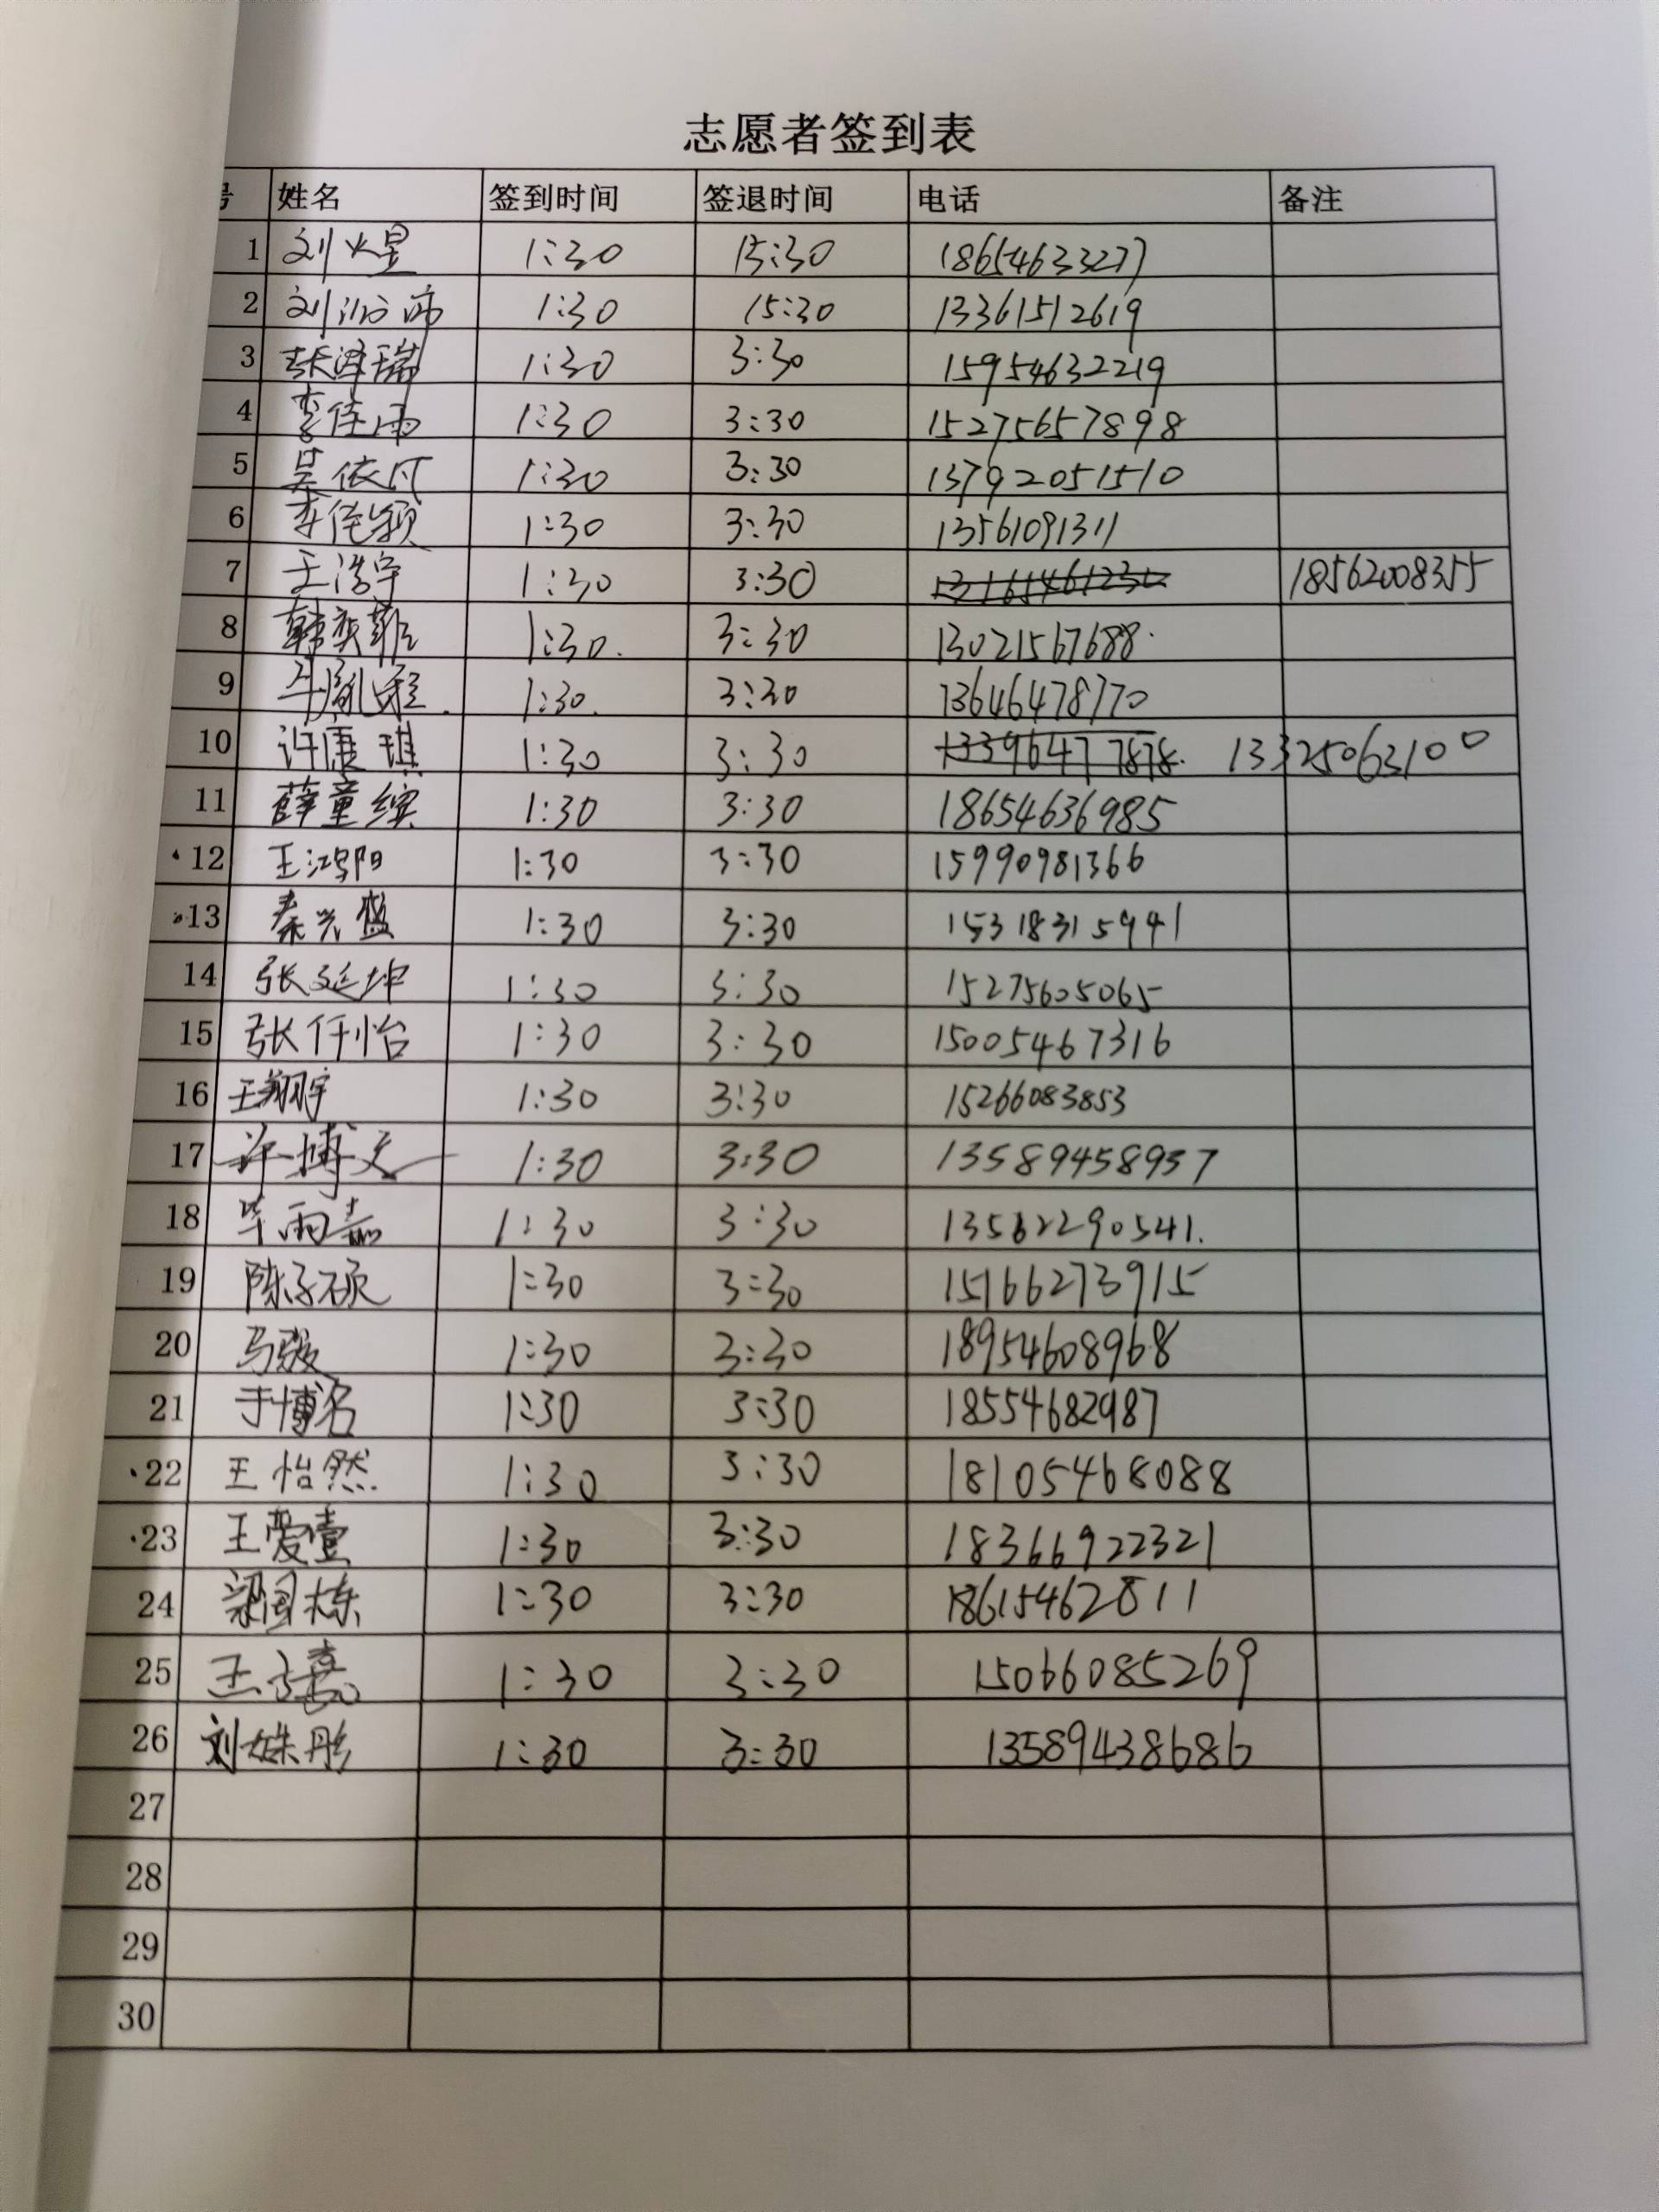 志愿者签到表
号 姓名 签到时间 签退时间 电话 备注
1 刘火星 1:30 15:30 18654633277
2 刘 1:30 15:30 13361512619
3 张泽瑞 1:30 3:30 15954632219
4 李佳雨 1:30 3:30 15275657898
5 吴依凡 1:30 3:30 13792051510
6 李佳颖 1:30 3:30 13561091311
7 王浩宇 1:30 3:30 18562008355
8 韩奕菲 1:30. 3:30 13021567688.
9 牛胤程. 1:30. 3:30 13646478770
10 许康琪 1:30 3:30 13396477878. 13325063100
11 薛童缤 1:30 3:30 18654636985
12 王鸿阳 1:30 3:30 15990981366
13 秦兴盛 1:30 3:30 15318315941
14 张延坤 1:30 3:30 15275605065
15 张仟怡 1:30 3:30 15005467316
16 王翔宇 1:30 3:30 15266083853
17 许博文 1:30 3:30 13589458937
18 毕雨嘉 1:30 3:30 13562290541.
19 陈子硕 1:30 3:30 15166273915
20 马骏 1:30 3:30 18954608968
21 于博名 1:30 3:30 18554682987
22 王怡然 1:30 3:30 18105468088
23 王爱壹 1:30 3:30 18366922321
24 梁国栋 1:30 3:30 18615462811
25 王子嘉 1:30 3:30 15066085269
26 刘姝彤 1:30 3:30 13589438686
27
28
29
30